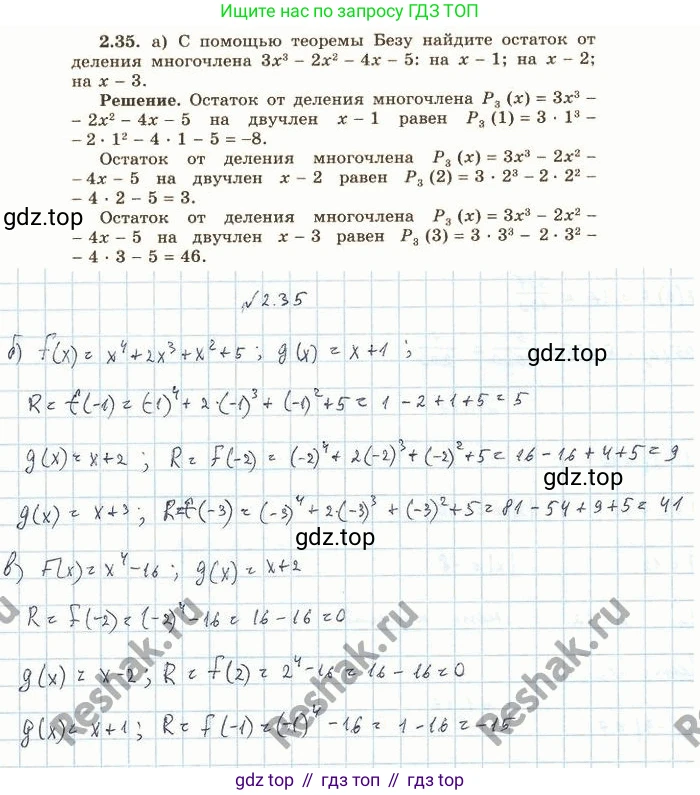 Нашли ГДЗ здесь: gdz.top
Ищите нас по запросу ГДЗ ТОП
2.35. а) С помощью теоремы Безу найдите остаток от
деления многочлена 3x³ – 2x² – 4x – 5: на x – 1; на x – 2;
на x – 3.
Решение. Остаток от деления многочлена P₃ (x) = 3x³ –
– 2x² – 4x – 5 на двучлен x – 1 равен P₃ (1) = 3 · 1³ –
– 2 · 1² – 4 · 1 – 5 = –8.
Остаток от деления многочлена P₃ (x) = 3x³ – 2x² –
– 4x – 5 на двучлен x – 2 равен P₃ (2) = 3 · 2³ – 2 · 2² –
– 4 · 2 – 5 = 3.
gdz.top
Остаток от деления многочлена P₃ (x) = 3x³ – 2x² –
– 4x – 5 на двучлен x – 3 равен P₃ (3) = 3 · 3³ – 2 · 3² –
– 4 · 3 – 5 = 46.
gdz.top
№2.35
б) f(x) = x⁴ + 2x³ + x² + 5 ; g(x) = x + 1 ;
gdz.top
R = f(-1) = (-1)⁴ + 2·(-1)³ + (-1)² + 5 = 1 - 2 + 1 + 5 = 5
g(x) = x + 2 ; R = f(-2) = (-2)⁴ + 2(-2)³ + (-2)² + 5 = 16 - 16 + 4 + 5 = 9
gdz.top
g(x) = x + 3 ; R = f(-3) = (-3)⁴ + 2·(-3)³ + (-3)² + 5 = 81 - 54 + 9 + 5 = 41
в) f(x) = x⁴ - 16 ; g(x) = x + 2
R = f(-2) = (-2)⁴ - 16 = 16 - 16 = 0
g(x) = x - 2 ; R = f(2) = 2⁴ - 16 = 16 - 16 = 0
g(x) = x + 1 ; R = f(-1) = (-1)⁴ - 16 = 1 - 16 = -15
Reshak.ru
Reshak.ru
Reshak.ru
gdz top // гдз топ // gdz.top